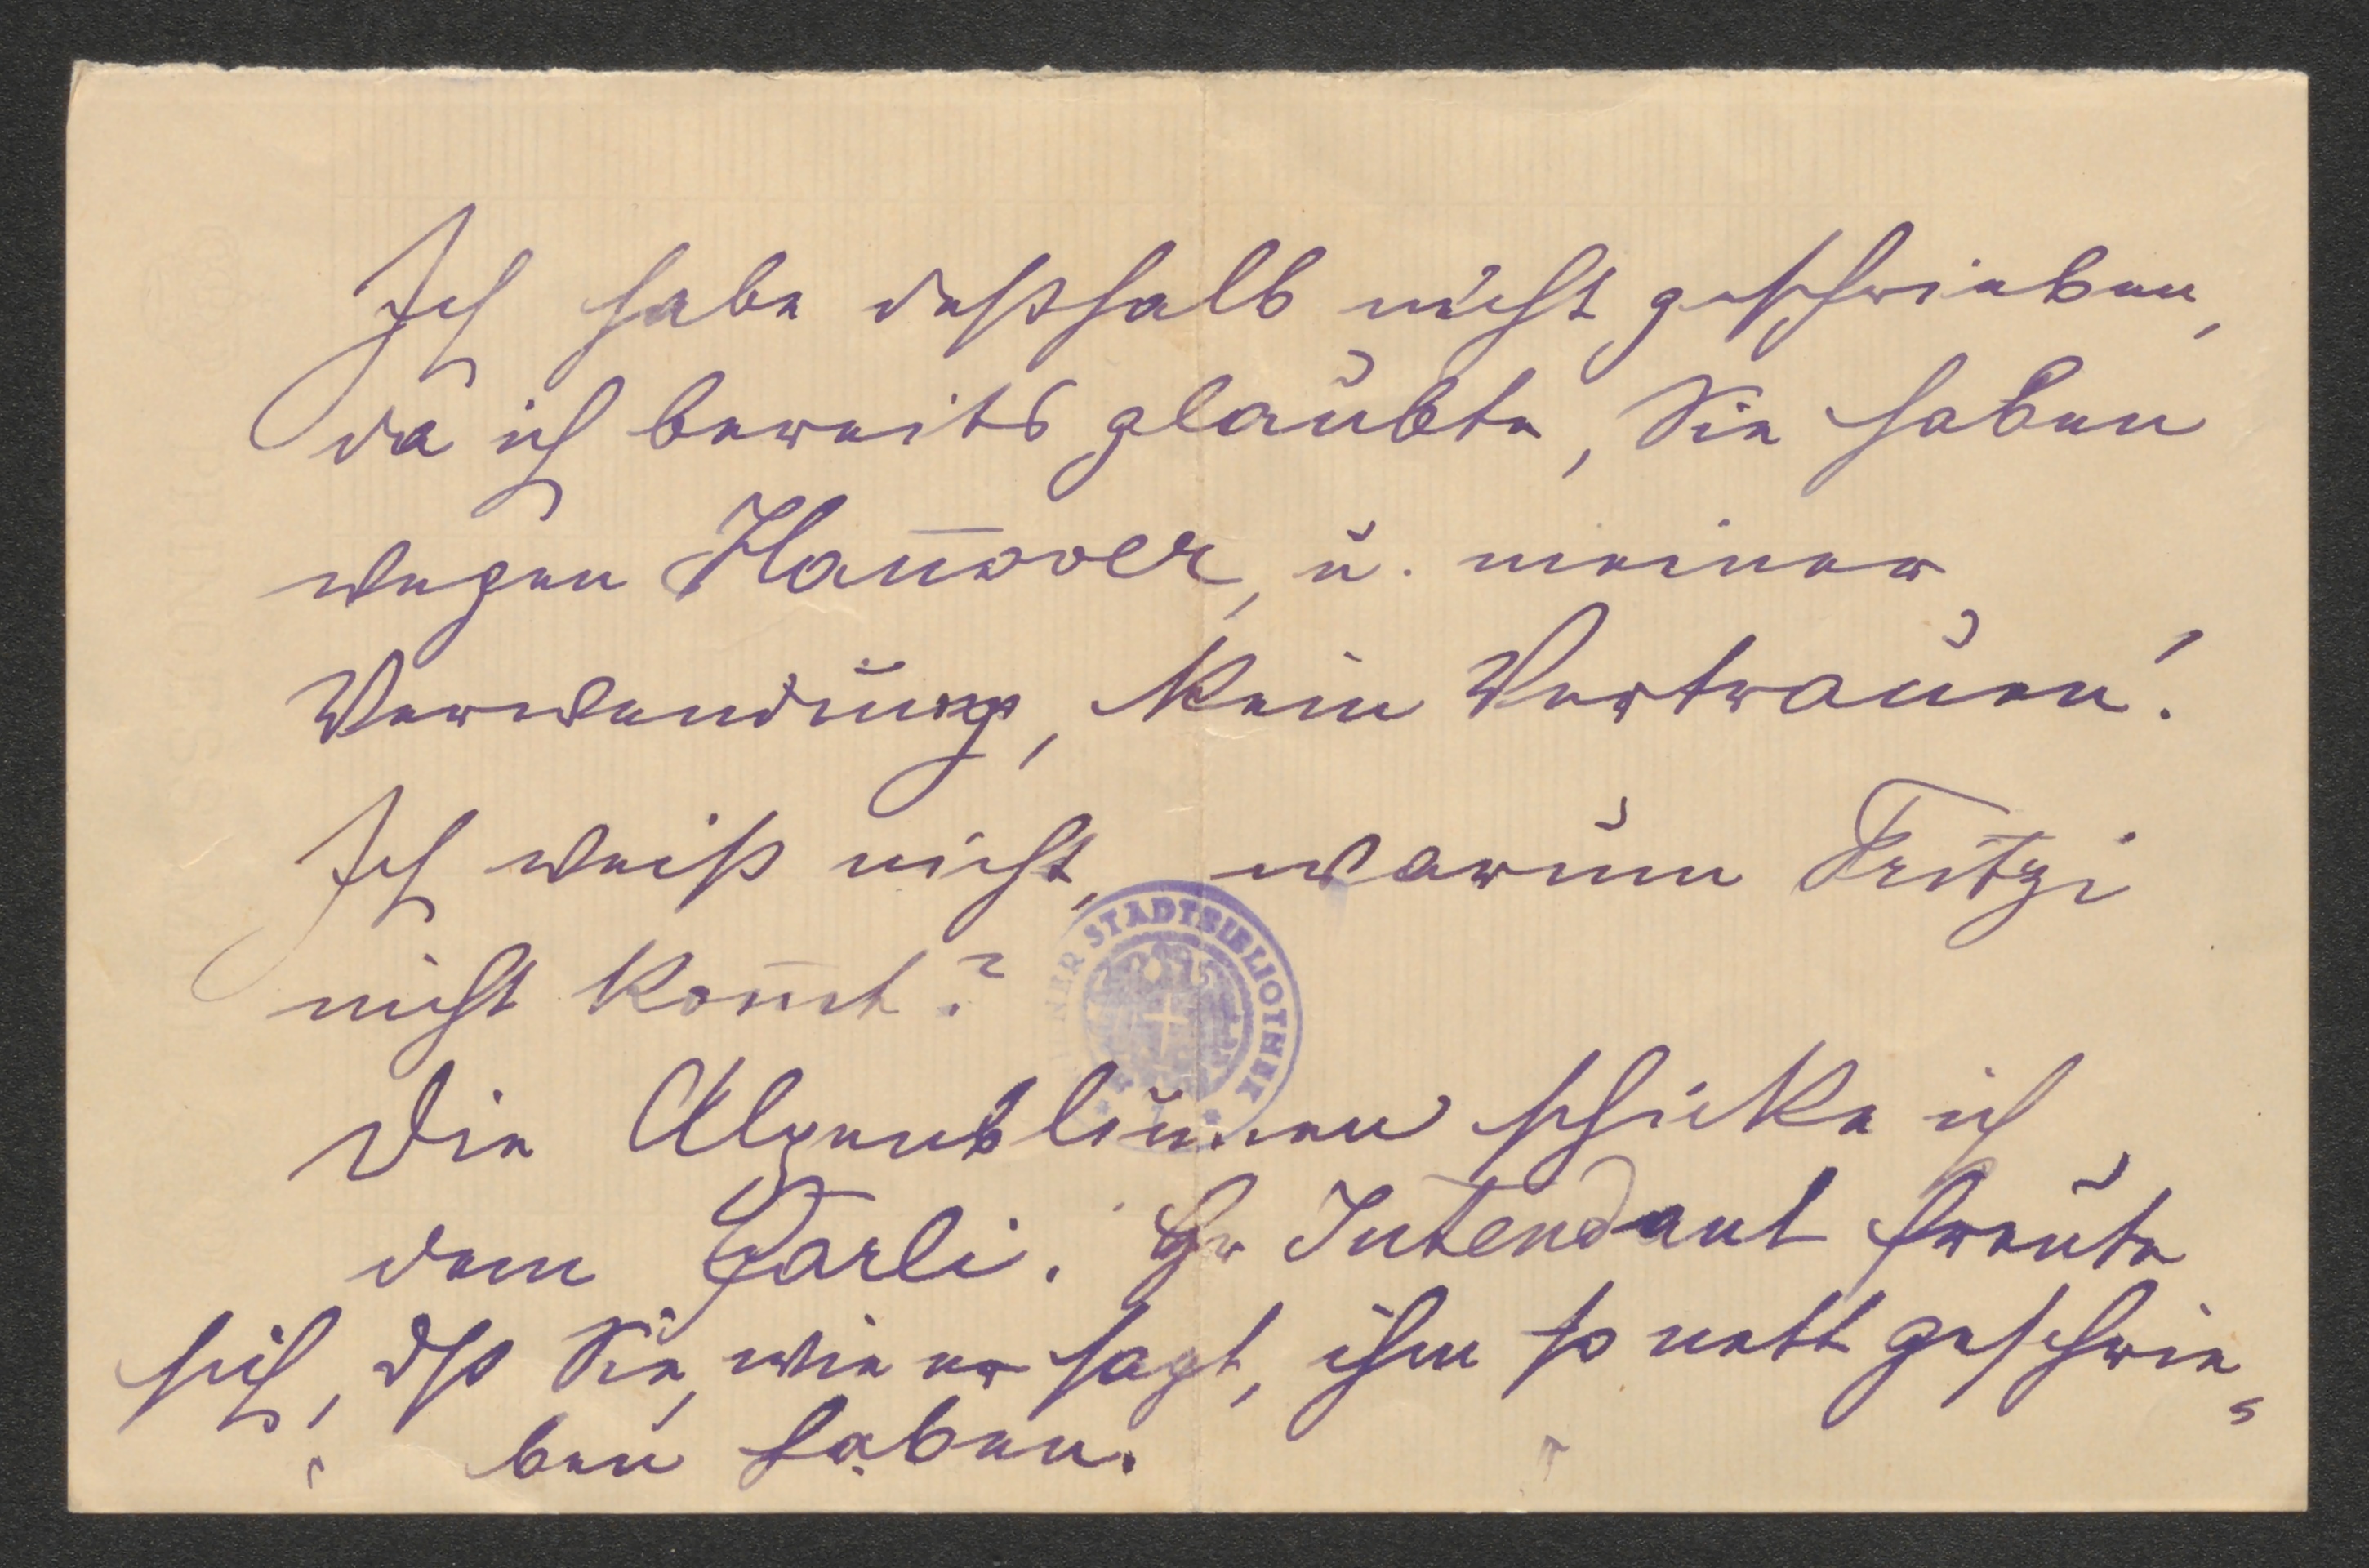 Ich habe deßhalb nicht geschrieben,
da ich bereits glaubte, Sie haben
wegen Han̄over, u. meiner
Verwendung, kein Vertrauen!
Ich weiß nicht, warum Fritzi
nicht kom̄t?
WIENER STADTBIBLIOTHEK
Die Alpenblumen schicke ich
dem Carli. Hr Intendant freute
sich, dß Sie, wie er sagt, ihm so nett geschrie=
ben haben.